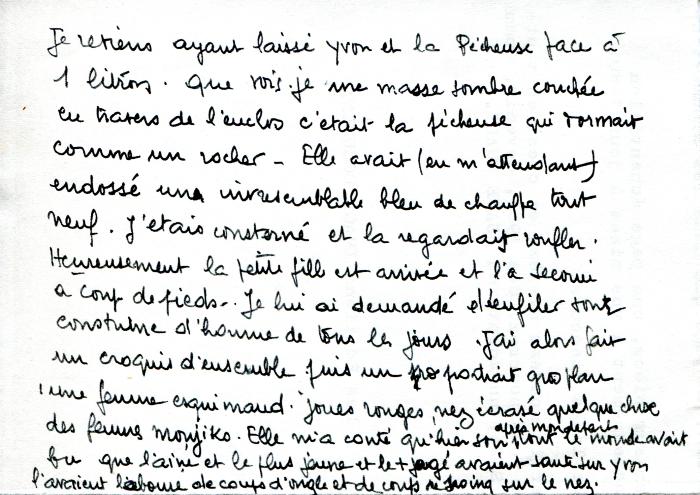 Je reviens ayant laissé yvon et la Pêcheuse face à
1 litron. Que vois-je une masse sombre couchée
en travers de l'enclos c'était la pêcheuse qui dormait
comme un rocher - Elle avait (en m'attendant)
endossé un invraisemblable bleu de chauffe tout
neuf. J'étais consterné et la regardait ronfler.
Heureusement la petite fill est arrivée et l'a secoui
à coup de pieds.. Je lui ai demandé d'enfiler son
constume d'homme de tous les jours. J'ai alors fait
un croquis d'ensemble puis un portrait gros plan
une femme esquimaud. joues rouges, nez écrasé quelque chose
des femmes Monjiko. Elle m'a conté qu'hier soir après mon départ tout le monde avait
bu que l'ainé et le plus jeune et le + âgé avaient sauté sur yvon
l'avaient de coups d'ongle et de coups de poing sur le nez.